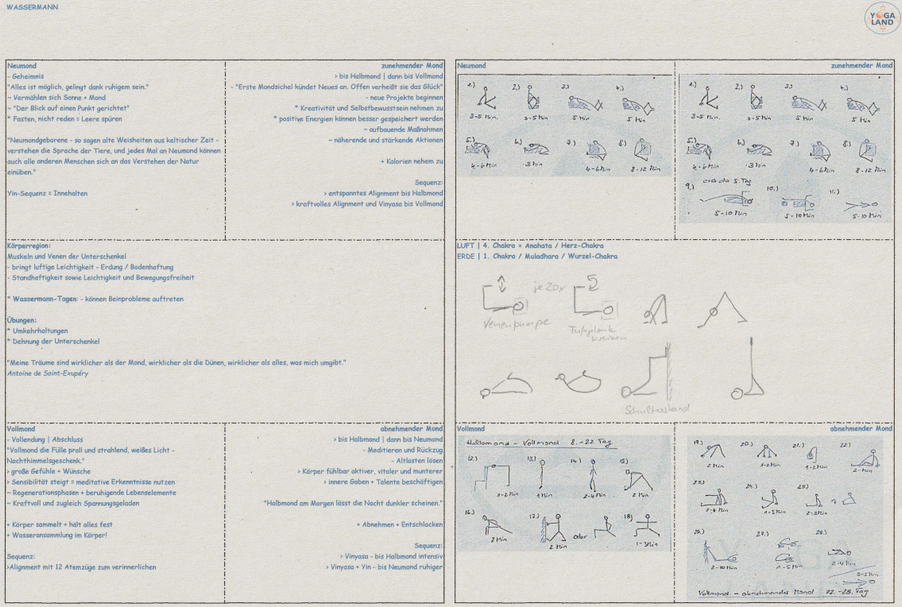 WASSERMANN
YOGA
LAND
Neumond
- Geheimnis
"Alles ist möglich, gelingt dank ruhigem sein."
~ Vermählen sich Sonne + Mond
~ "Der Blick auf einen Punkt gerichtet"
* Fasten, nicht reden = Leere spüren
"Neumondgeborene - so sagen alte Weisheiten aus keltischer Zeit -
verstehen die Sprache der Tiere, und jedes Mal an Neumond können
auch alle anderen Menschen sich an das Verstehen der Natur
einüben."
Yin-Sequenz = Innehalten
zunehmender Mond
> bis Halbmond | dann bis Vollmond
- "Erste Mondsichel kündet Neues an. Offen verheißt sie das Glück"
- neue Projekte beginnen
* Kreativität und Selbstbewusstsein nehmen zu
* positive Energien können besser gespeichert werden
~ aufbauende Maßnahmen
~ nährende und stärkende Aktionen
+ Kalorien nehem zu
Sequenz:
> entspanntes Alignment bis Halbmond
> kraftvolles Alignment und Vinyasa bis Vollmond
Körperregion:
Muskeln und Venen der Unterschenkel
- bringt luftige Leichtigkeit - Erdung / Bodenhaftung
- Standhaftigkeit sowie Leichtigkeit und Bewegungsfreiheit
* Wassermann-Tagen: - können Beinprobleme auftreten
Übungen:
* Umkehrhaltungen
* Dehnung der Unterschenkel
"Meine Träume sind wirklicher als der Mond, wirklicher als die Dünen, wirklicher als alles, was mich umgibt."
Antoine de Saint-Exupéry
Vollmond
- Vollendung | Abschluss
"Vollmond die Fülle prall und strahlend, weißes Licht -
Nachthimmelsgeschenk."
> große Gefühle + Wünsche
> Sensibilität steigt = meditative Erkenntnisse nutzen
~ Regenerationsphasen + beruhigende Lebenselemente
~ Kraftvoll und zugleich Spannungsgeladen
+ Körper sammelt + hält alles fest
+ Wasseransammlung im Körper!
Sequenz:
>Alignment mit 12 Atemzüge zum verinnerlichen
abnehmender Mond
> bis Halbmond | dann bis Neumond
- Meditieren und Rückzug
- Altlasten lösen
> Körper fühlbar aktiver, vitaler und munterer
> innere Gaben + Talente beschäftigen
"Halbmond am Morgen lässt die Nacht dunkler scheinen."
+ Abnehmen + Entschlacken
Sequenz:
> Vinyasa - bis Halbmond intensiv
> Vinyasa + Yin - bis Neumond ruhiger
Neumond
2.)
3.)
4.)
3-5 Min
5 Min
5 Min
5 Min
5.)
6.)
7.)
8.)
4-6 Min
3 Min
4-6 Min
8-12 Min
zunehmender Mond
2.)
3.)
4.)
3-5 Min
5 Min
5 Min
5 Min
5.)
6.)
7.)
8.)
4-6 Min
3 Min
4-6 Min
8-12 Min
5. Tag
9.)
10.)
11.)
5-10 Min
5-10 Min
5-10 Min
LUFT | 4. Chakra = Anahata / Herz-Chakra
ERDE | 1. Chakra / Muladhara / Wurzel-Chakra
je 20x
Venenpumpe
kreisen
Schulterstand
Vollmond
Halbmond - Vollmond 8.-22. Tag
12.)
13.)
14.)
15.)
1-2 Min
1 Min
2-4 Min
2 Min
16.)
17.)
oder
18.)
2 Min
2 Min
1-3 Min
abnehmender Mond
19.)
20.)
21.)
22.)
2 Min
1-2 Min
1-2 Min
2-3 Min
23.)
24.)
25.)
2-4 Min
1-2 Min
2-3 Min
26.)
27.)
28.)
2-10 Min
1-5 Min
2-4 Min
Vollmond - abnehmender Mond 22.-28. Tag